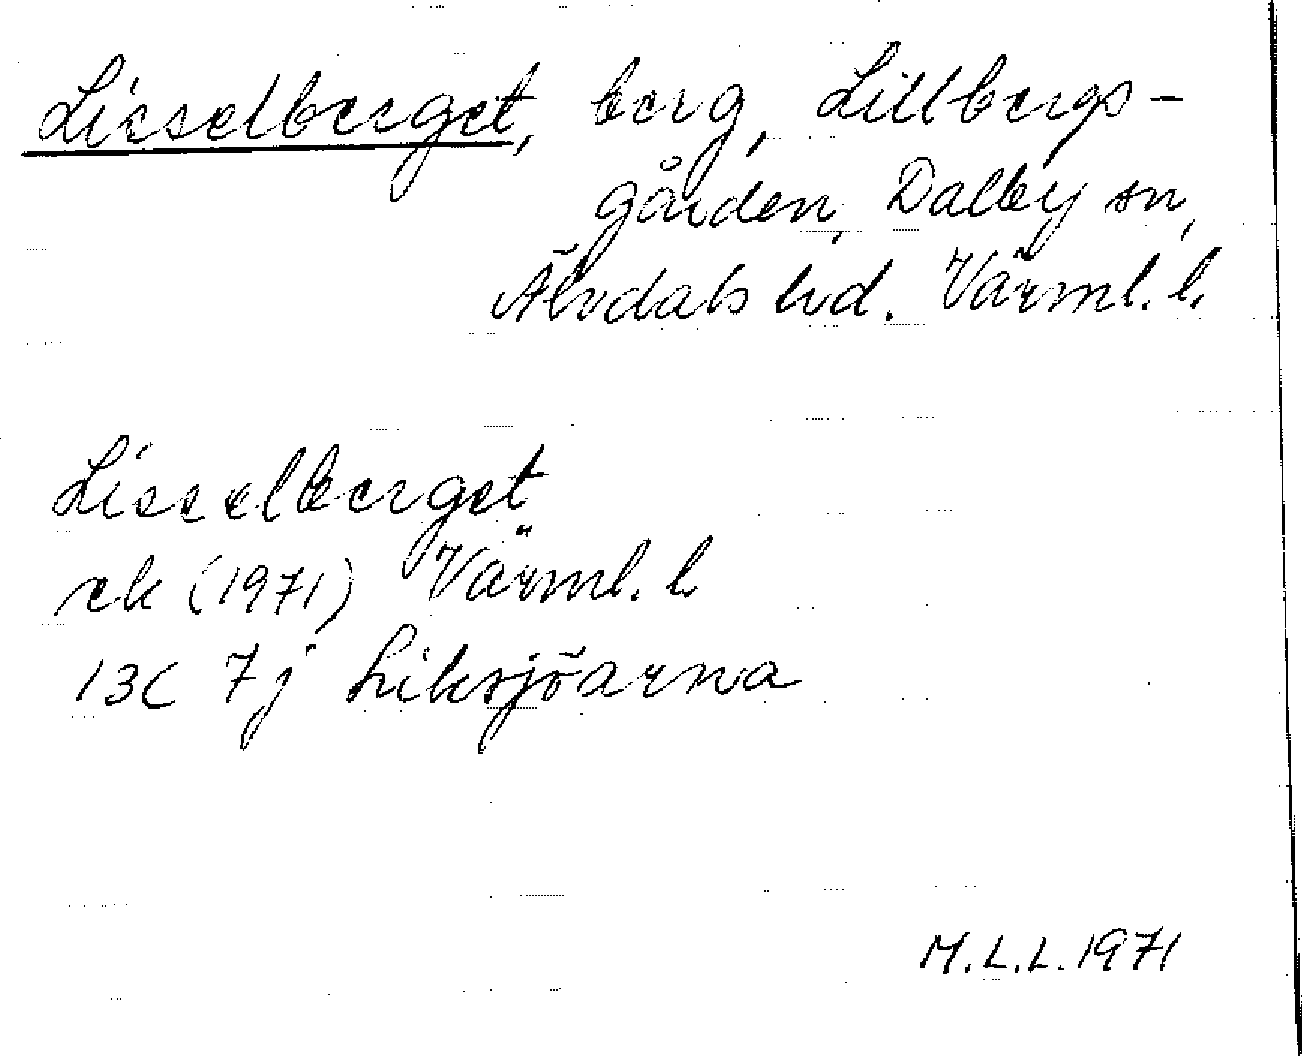 Lisselberget, berg, Lillbergs-
gården, Dalby sn,
Älvdals hd. Värml. l.
Lisselberget
ek (1971) Värml. l
13C 7j Liksjöarna
M.L.L. 1971